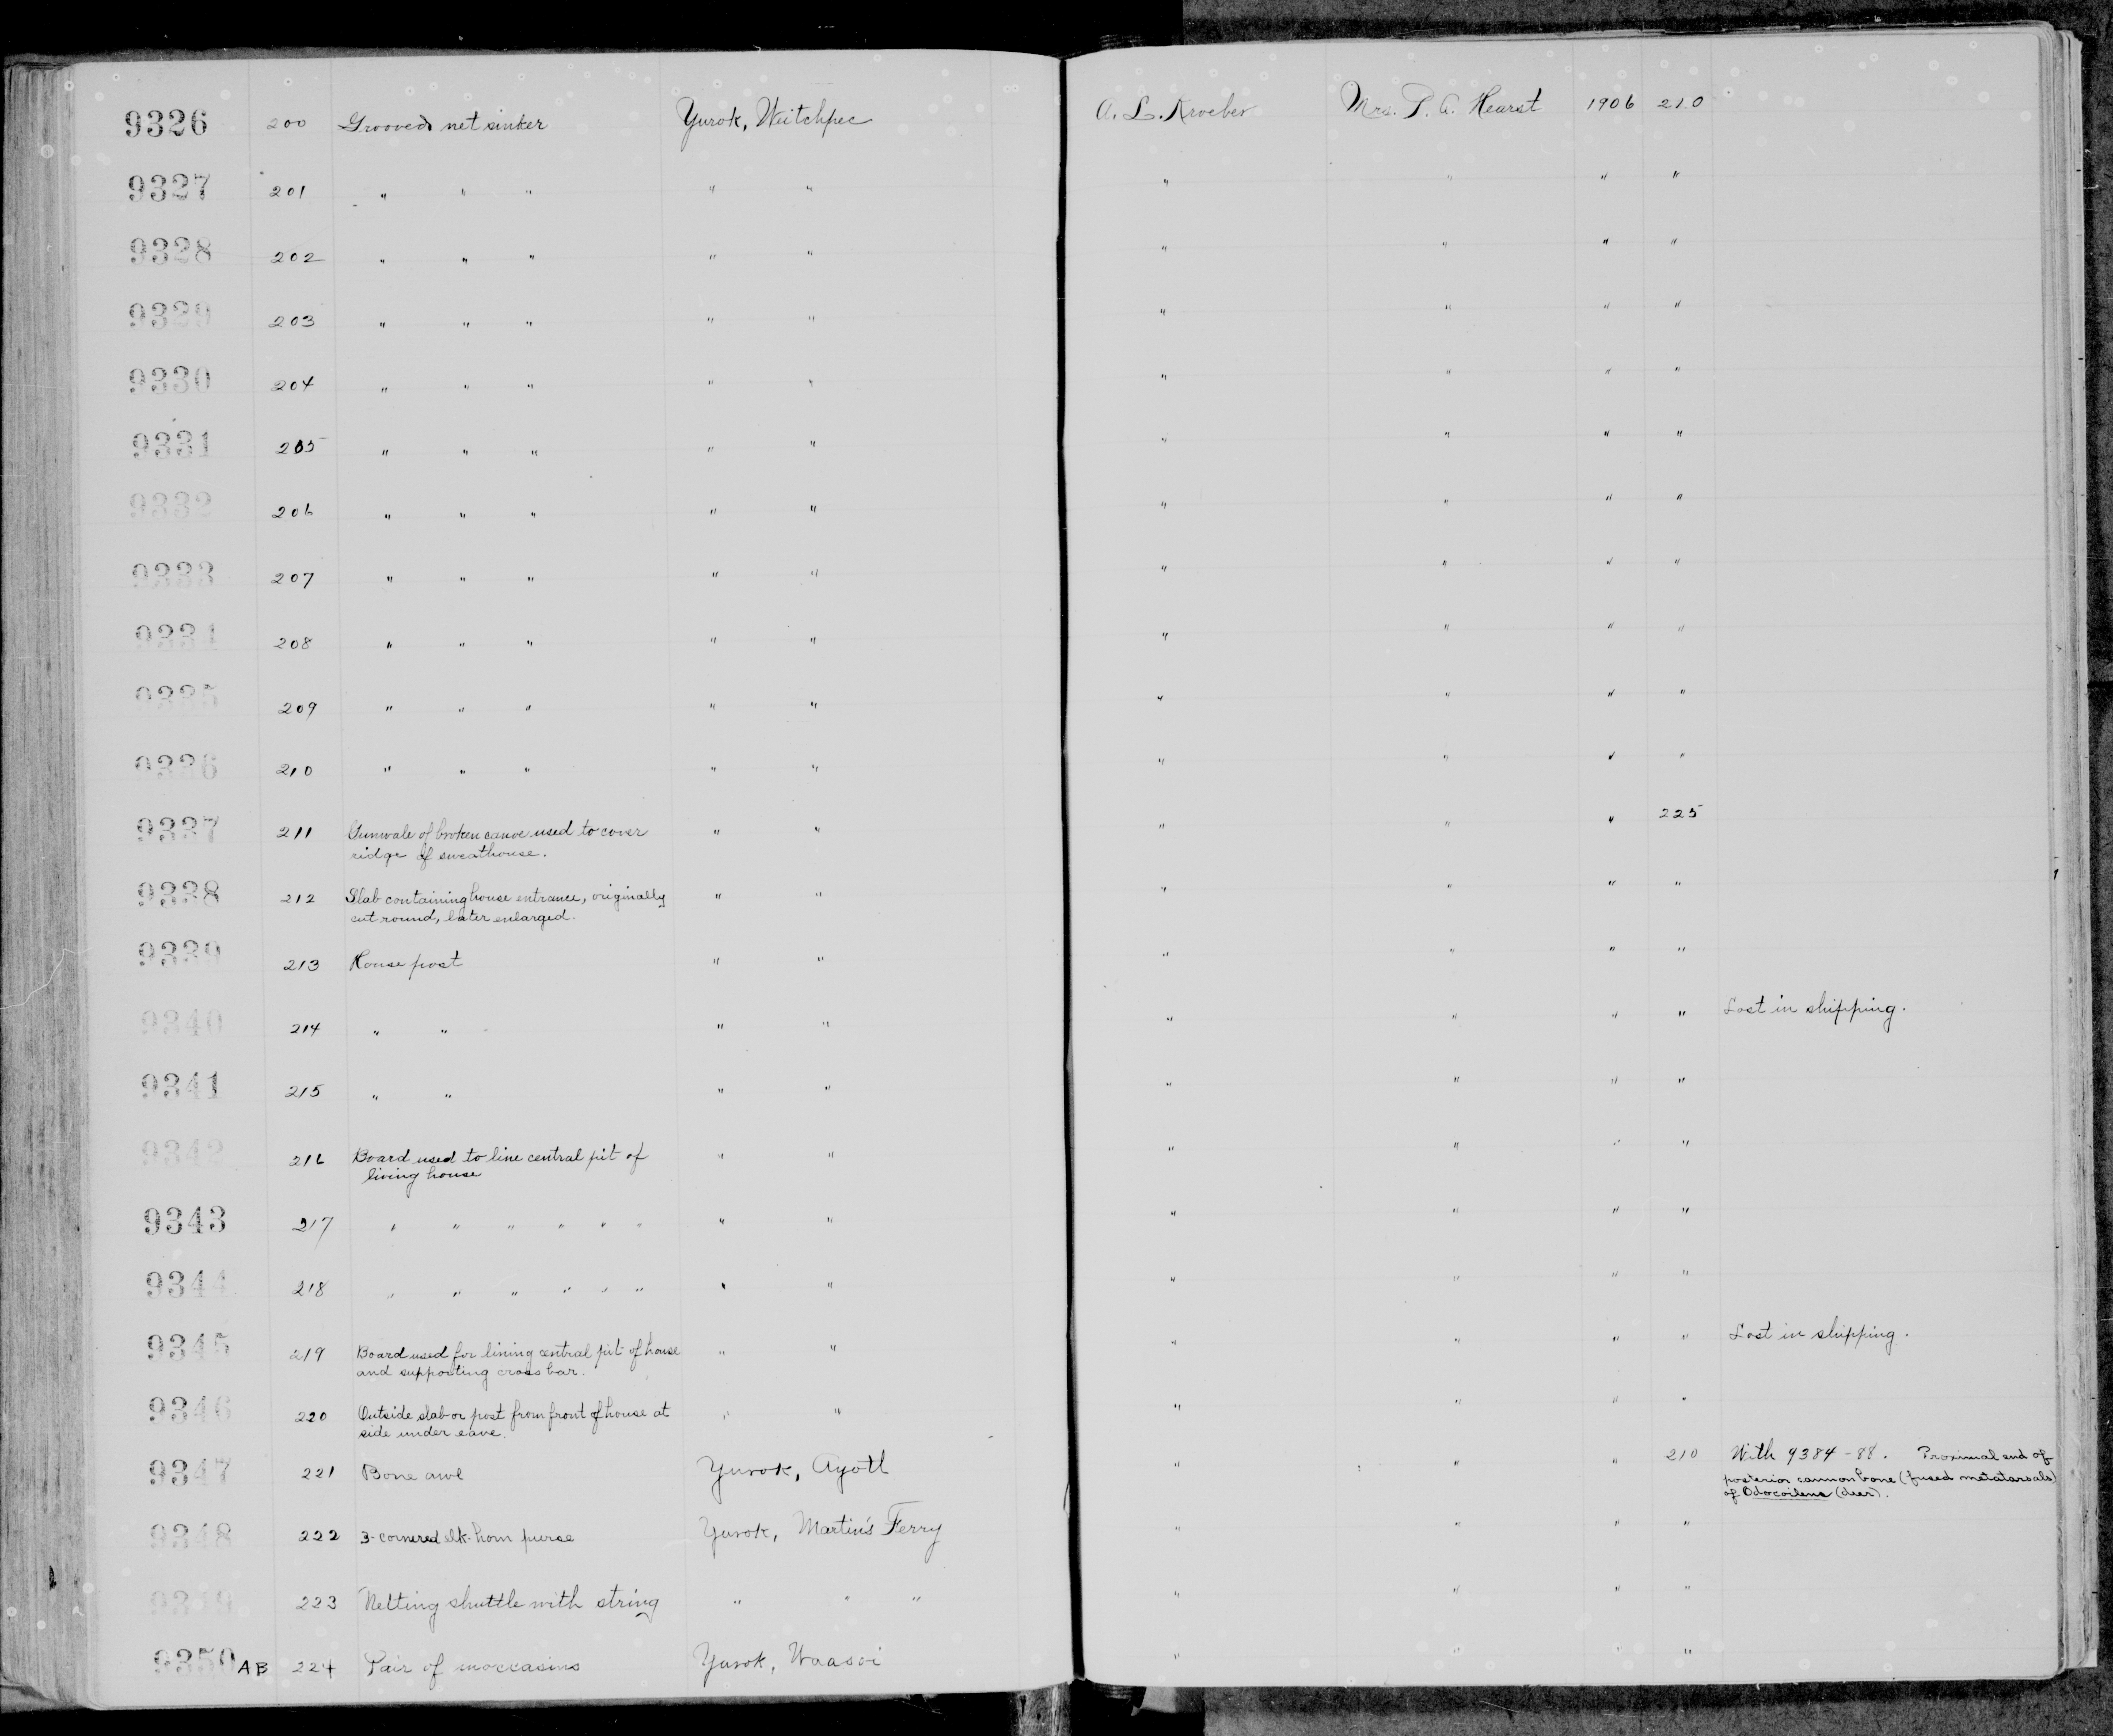 9326 200 Grooved net sinker Yurok, Weitchpec A. L. Kroeber Mrs. P. A. Hearst 1906 210
9327 201 " " " " " " " " "
9328 202 " " " " " " " " "
9329 203 " " " " " " " " "
9330 204 " " " " " " " " "
9331 205 " " " " " " " " "
9332 206 " " " " " " " " "
9333 207 " " " " " " " " "
9334 208 " " " " " " " " "
9335 209 " " " " " " " " "
9336 210 " " " " " " " " "
9337 211 Gunwale of broken canoe used to cover " " " " " 225
ridge of sweathouse.
9338 212 Slab containing house entrance, originally " " " " " "
cut round, later enlarged.
9339 213 House post " " " " " "
9340 214 " " " " " " " " Lost in shipping.
9341 215 " " " " " " " "
9342 216 Board used to line central pit of " " " " " "
living house
9343 217 " " " " " " " " " " " "
9344 218 " " " " " " " " " " " "
9345 219 Board used for lining central pit of house " " " " " " Lost in shipping.
and supporting cross bar.
9346 220 Outside slab or post from front of house at " " " " " "
side under eave.
9347 221 Bone awl Yurok, Ayotl " " " 210 With 9384-88. Proximal end of
posterior cannon bone (fused metatarsals)
of Odocoileus (deer).
9348 222 3-cornered elk-horn purse Yurok, Martin's Ferry " " " "
9349 223 Netting shuttle with string " " " " " " "
9350 AB 224 Pair of moccasins Yurok, Waasoi " " " "